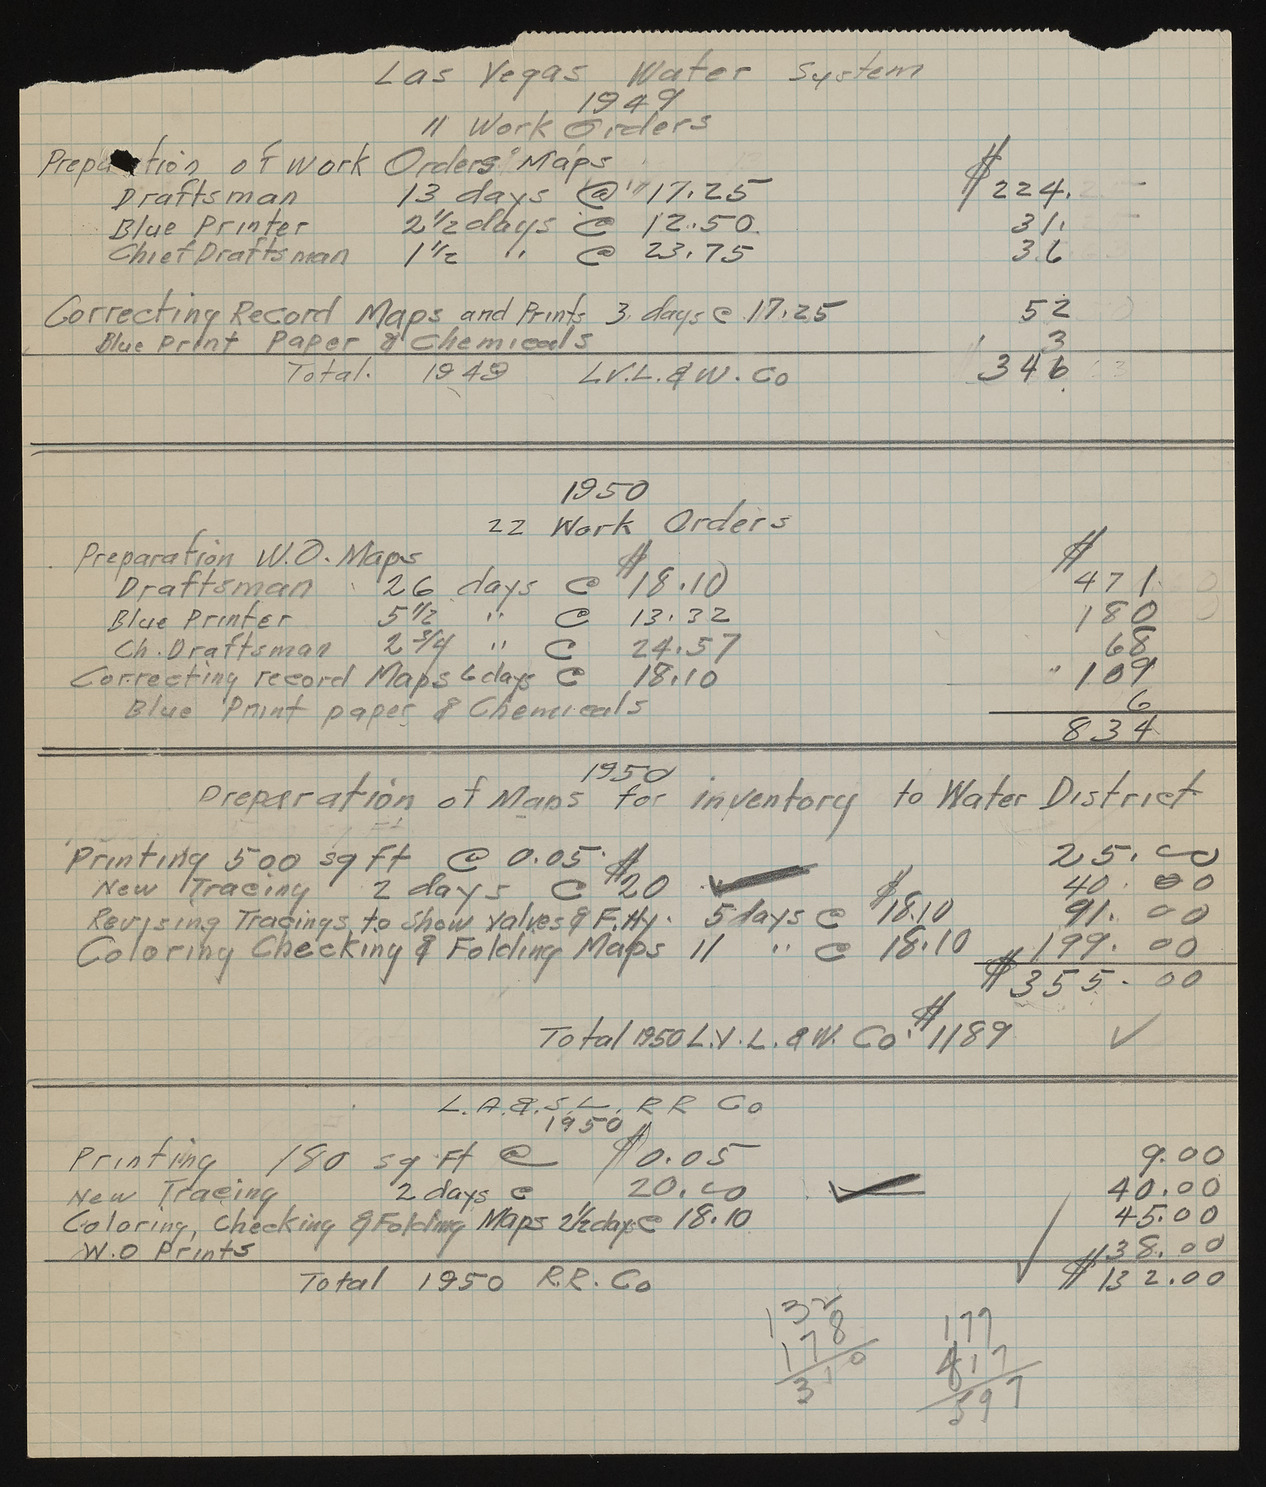 Las Vegas Water System
1949
11 Work Orders
Preparation of Work Orders Maps $
Draftsman 13 days @ " 17.25 224.
Blue Printer 2 1/2 days @ 12.50 31.
Chief Draftsman 1 1/2 " @ 23.75 36
Correcting Record Maps and Prints 3 days @ 17.25 52
Blue Print Paper & Chemicals 3
Total. 1949 L.V.L. & W. Co 346
1950
22 Work Orders
Preparation W.O. Maps $
Draftsman 26 days @ $18.10 471.
Blue Printer 5 1/2 " @ 13.32 180
Ch. Draftsman 2 3/4 " @ 24.57 68
Correcting record Maps 6 days @ 18.10 109
Blue Print paper & Chemicals 6
834
1950
Preparation of Maps for inventory to Water District
Printing 500 sq ft @ 0.05 25.00
New Tracing 2 days @ $20 ✓ 40.00
Revising Tracings, to Show Valves & F. Hy. 5 days @ $18.10 91.00
Coloring Checking & Folding Maps 11 " @ 18.10 199.00
$355.00
Total 1950 L.V.L. & W. Co. $1189 ✓
L.A. & S.L. R R Co
1950
Printing 180 sq ft @ $0.05 9.00
New Tracing 2 days @ 20.00 ✓ 40.00
Coloring, Checking & Folding Maps 2 1/2 days @ 18.10 45.00
W.O Prints 38.00
Total 1950 R.R. Co ✓ $132.00
132 177
178 417
310 597